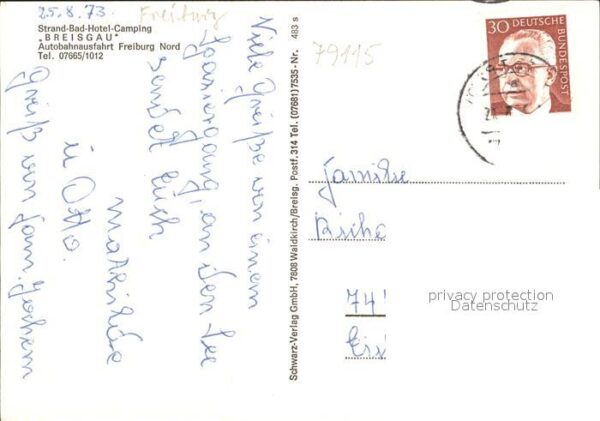 25.8.73.
Freiburg
Strand-Bad-Hotel-Camping
"BREISGAU"
Autobahnausfahrt Freiburg Nord
Tel. 07665/1012
Viele Grüße von einem
Spaziergang, an den See
sendet Euch
Mathilde
u Otto.
Gruß von Fam. Jochem
Schwarz-Verlag GmbH, 7808 Waldkirch/Breisg. Postf. 314 Tel. (07681) 7535 - Nr. 483 s
79115
30 DEUTSCHE
BUNDESPOST
Familie
74
privacy protection
Datenschutz